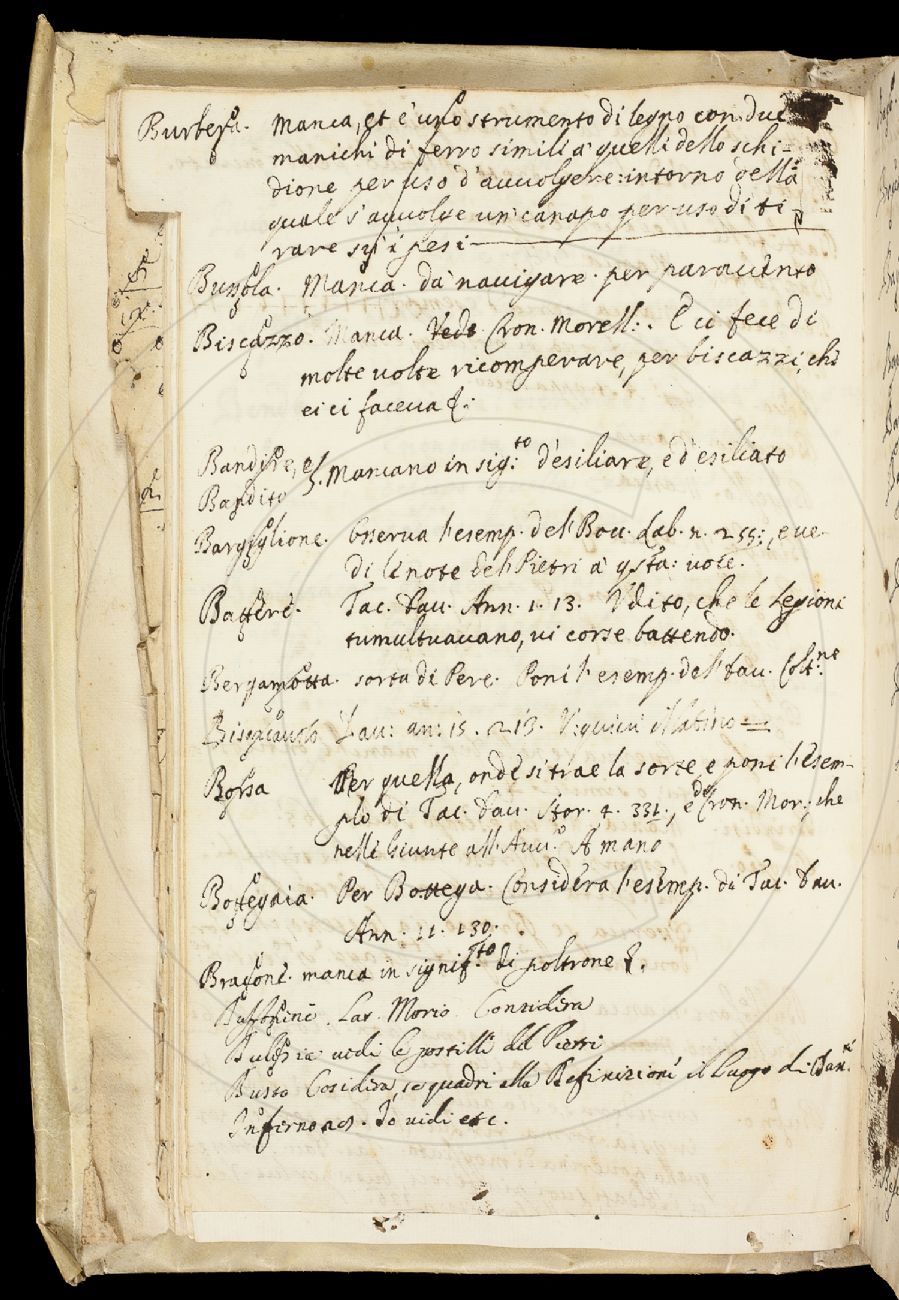 Burbera. Manca, et è uno strumento di legno con due
manichi di ferro simili a' quelli dello schi-
dione per uso d'avvolgere: intorno della
quale s'avvolge un' canapo per uso di ti-
rare sù i pesi
Bussola. Manca. da' navigare. per paravento
Biscazzo. Manca. Vedi Cron. Morell: . E ci fece di
molte volte ricomperare, per biscazzi, chè
ei ci faceva &:
Bandire, e
Bandito Mancano in sig:to d'esiliare, e d'esiliato
Bargiglione. Osserva l'esemp. del Bou. Lab. n. 255:, e ve-
di le note del Pietri a' qsta: voce.
Battere. Tac. Dav. Ann. 1. 13. Udito, che le Legioni
tumultuavano, vi corse battendo.
Bergamotta. sorta di Pere. Poni l'esemp. del Dav. Colt:ne
Dav: an: 15. 213. il latino
Borsa Per quella, onde si trae la sorte, e poni l'Esem-
plo di Tac. Dav. Stor. 4. 331., e di Cron. Mor:, che
nelle Giunte all'Avv:o A mano
Bottegaia. Per Bottega. Considera l'esemp. di Tac. Dav.
Ann. 11. 130.
Bracone. manca in signif:to di poltrone &.
Buffone. Lat. Morio. Considera
vedi le postille del Pietri
Busto Cosidera, se quadri alla Definizione il luogo di Dan:
Inferno Io vidi etc.